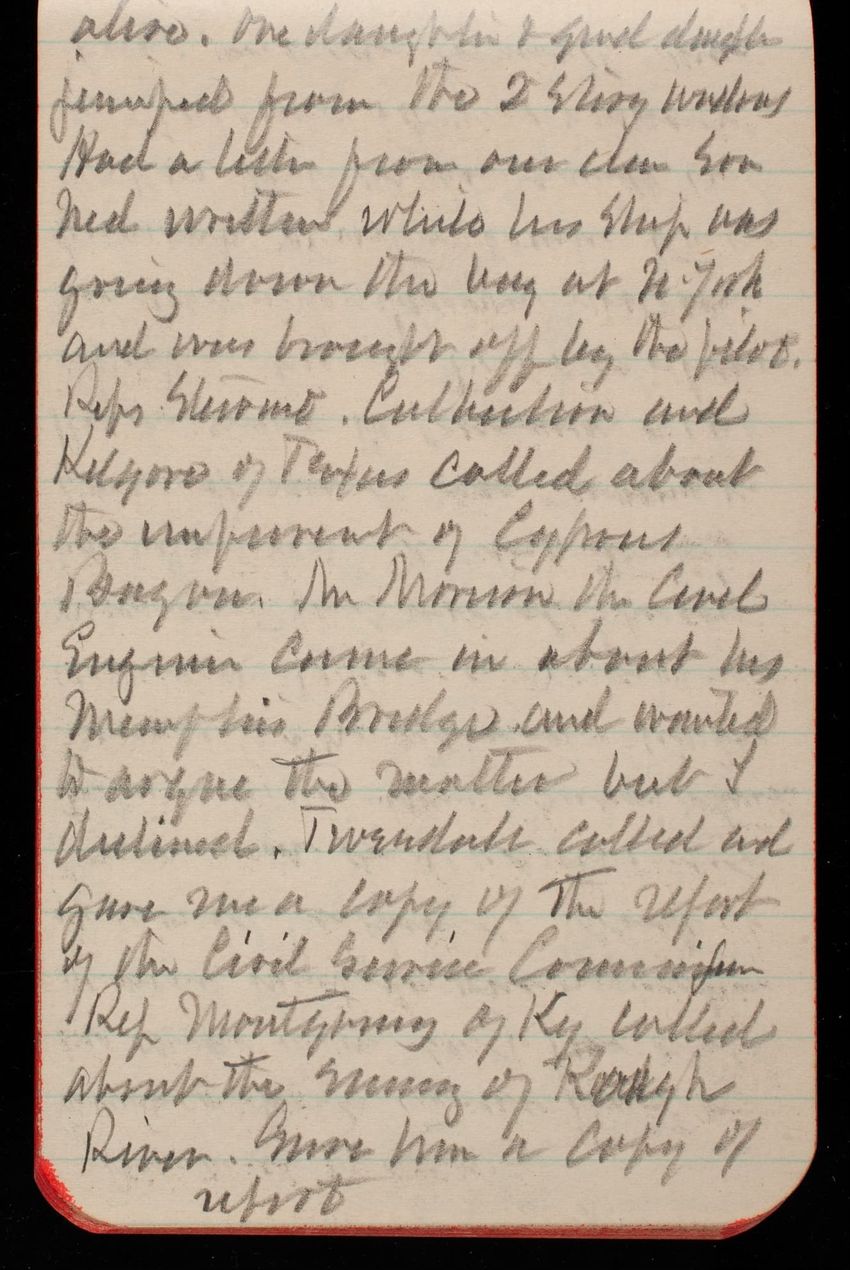 alive. One daughter & grand daughter
jumped from the 2 Story windows
Had a letter from our dear Son
Ned written while his Ship was
going down the bay at N-York
and was brought off by the pilot.
Reps Stewart. Culberson and
Kilgore of Texas called about
the improvement of Cypress
Bayou. Mr Morison the Civil
Engineer came in about his
Memphis Bridge and wanted
to argue the matter but I
declined. Tweedale called and
gave me a copy of the report
of the Civil Service Commission
Rep Montgomery of Ky called
about the Survey of Rough
River. Gave him a copy of
report